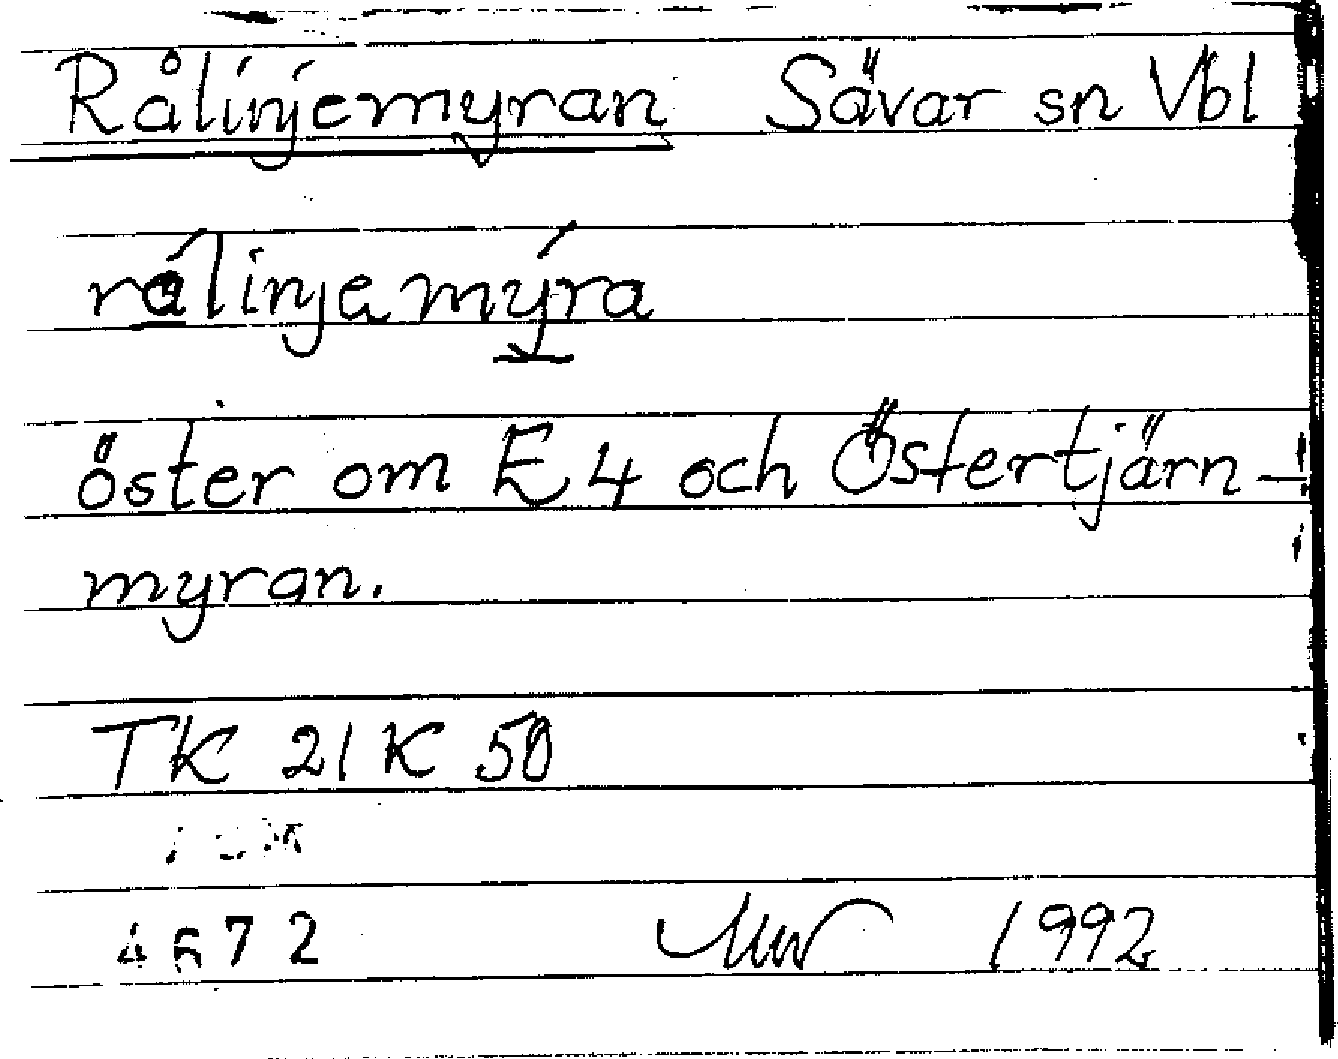 Rålinjemyran Sävar sn Vbl
rálinjamýra
öster om E4 och Östertjärn-
myran.
TK 21K 50
4672 1992